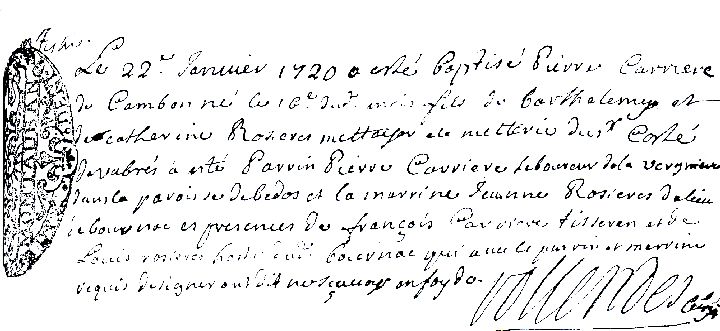 Le 22e Janvier 1720 a esté baptisé Pierre Carriere
de Cambon né le 16e dud. mois fils de barthelemy et
de catherine Rosieres mettayer de la metterie du sr Corté
de vabrés à esté Parrin Pierre Carriere laboureur de la vergniere
dans la paroisse de bedos et la marrine Jeanne Rosieres du lieu
de bournac es presences de françois Carriere tisseran et de
Louis rosieres hoste dud. bournac qui avec le parrin et marrine
requis de signer ont dit ne sçavoir en foy de